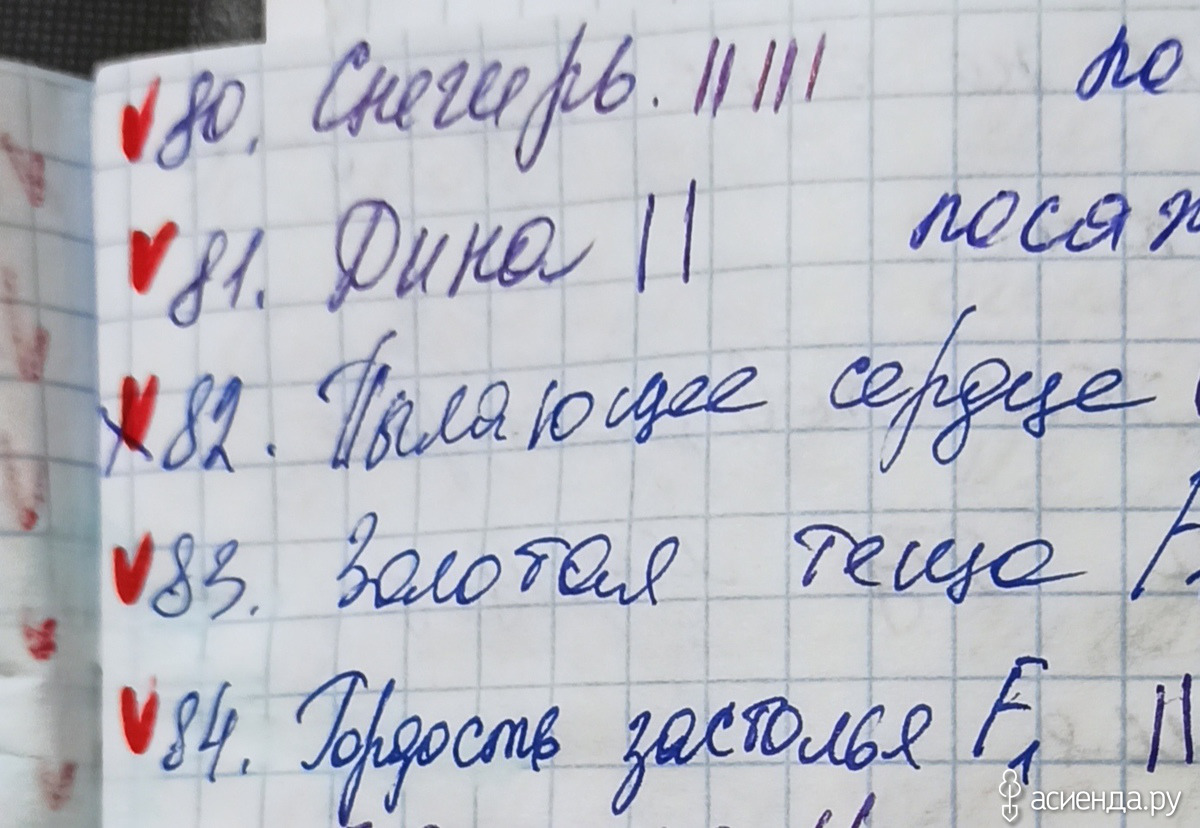 80. Снегирь. || ||| по
81. Дина || посаж
82. Пылающее сердце
83. Золотая теща F
84. Гордость застолья F1 ||
асиенда.ру